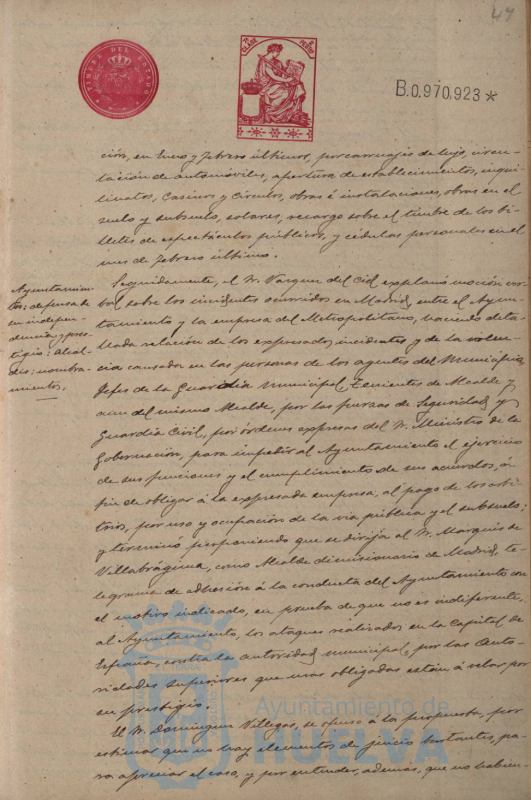 49
TIMBRE DEL ESTADO
B.0.970.923*
ción, en Enero y Febrero últimos, por carruajes de lujo, circu-
lación de automóviles, apertura de establecimientos, inqui-
linatos, Casinos y Círculos, obras é instalaciones, obras en el
suelo y subsuelo, solares, recargo sobre el timbre de los bi-
lletes de espectáculos públicos, y cédulas personales en el
mes de Febrero último.
Ayuntamien-
tos: defensa de
su indepen-
dencia y pres-
tigio: Alcal-
des: nombra-
mientos.
Seguidamente, el Sr. Vazquez del Cid explanó moción ver-
bal sobre los incidentes ocurridos en Madrid, entre el Ayun-
tamiento, y la empresa del Metropolitano, haciendo deta-
llada relación de los expresados incidentes y de la violen-
cia causada en las personas de los agentes del Municipio,
Jefes de la Guardia Municipal, Tenientes de Alcalde y
aun del mismo Alcalde, por las fuerzas de Seguridad y
Guardia Civil, por órdenes expresas del Sr. Ministro de la
Gobernación, para impedir al Ayuntamiento el ejercicio
de sus funciones y el cumplimiento de sus acuerdos, á
fin de obligar á la expresada empresa, al pago de los arbi-
trios, por uso y ocupación de la vía pública y el subsuelo;
y terminó proponiendo que se dirija al Sr. Marqués de
Villabrágima, como Alcalde dimisionario de Madrid, te-
legrama de adhesión á la conducta del Ayuntamiento con
el motivo indicado, en prueba de que no es indiferente,
al Ayuntamiento, los ataques realizados en la Capital de
España, contra la autoridad municipal, por las Auto-
ridades superiores que mas obligadas están á velar por
su prestigio.
El Sr. Dominguez Villegas, se opuso á la propuesta, por
estimar que no hay elementos de juicio bastantes, pa-
ra apreciar el caso, y por entender, además, que no habien-
Ayuntamiento de
HUELVA